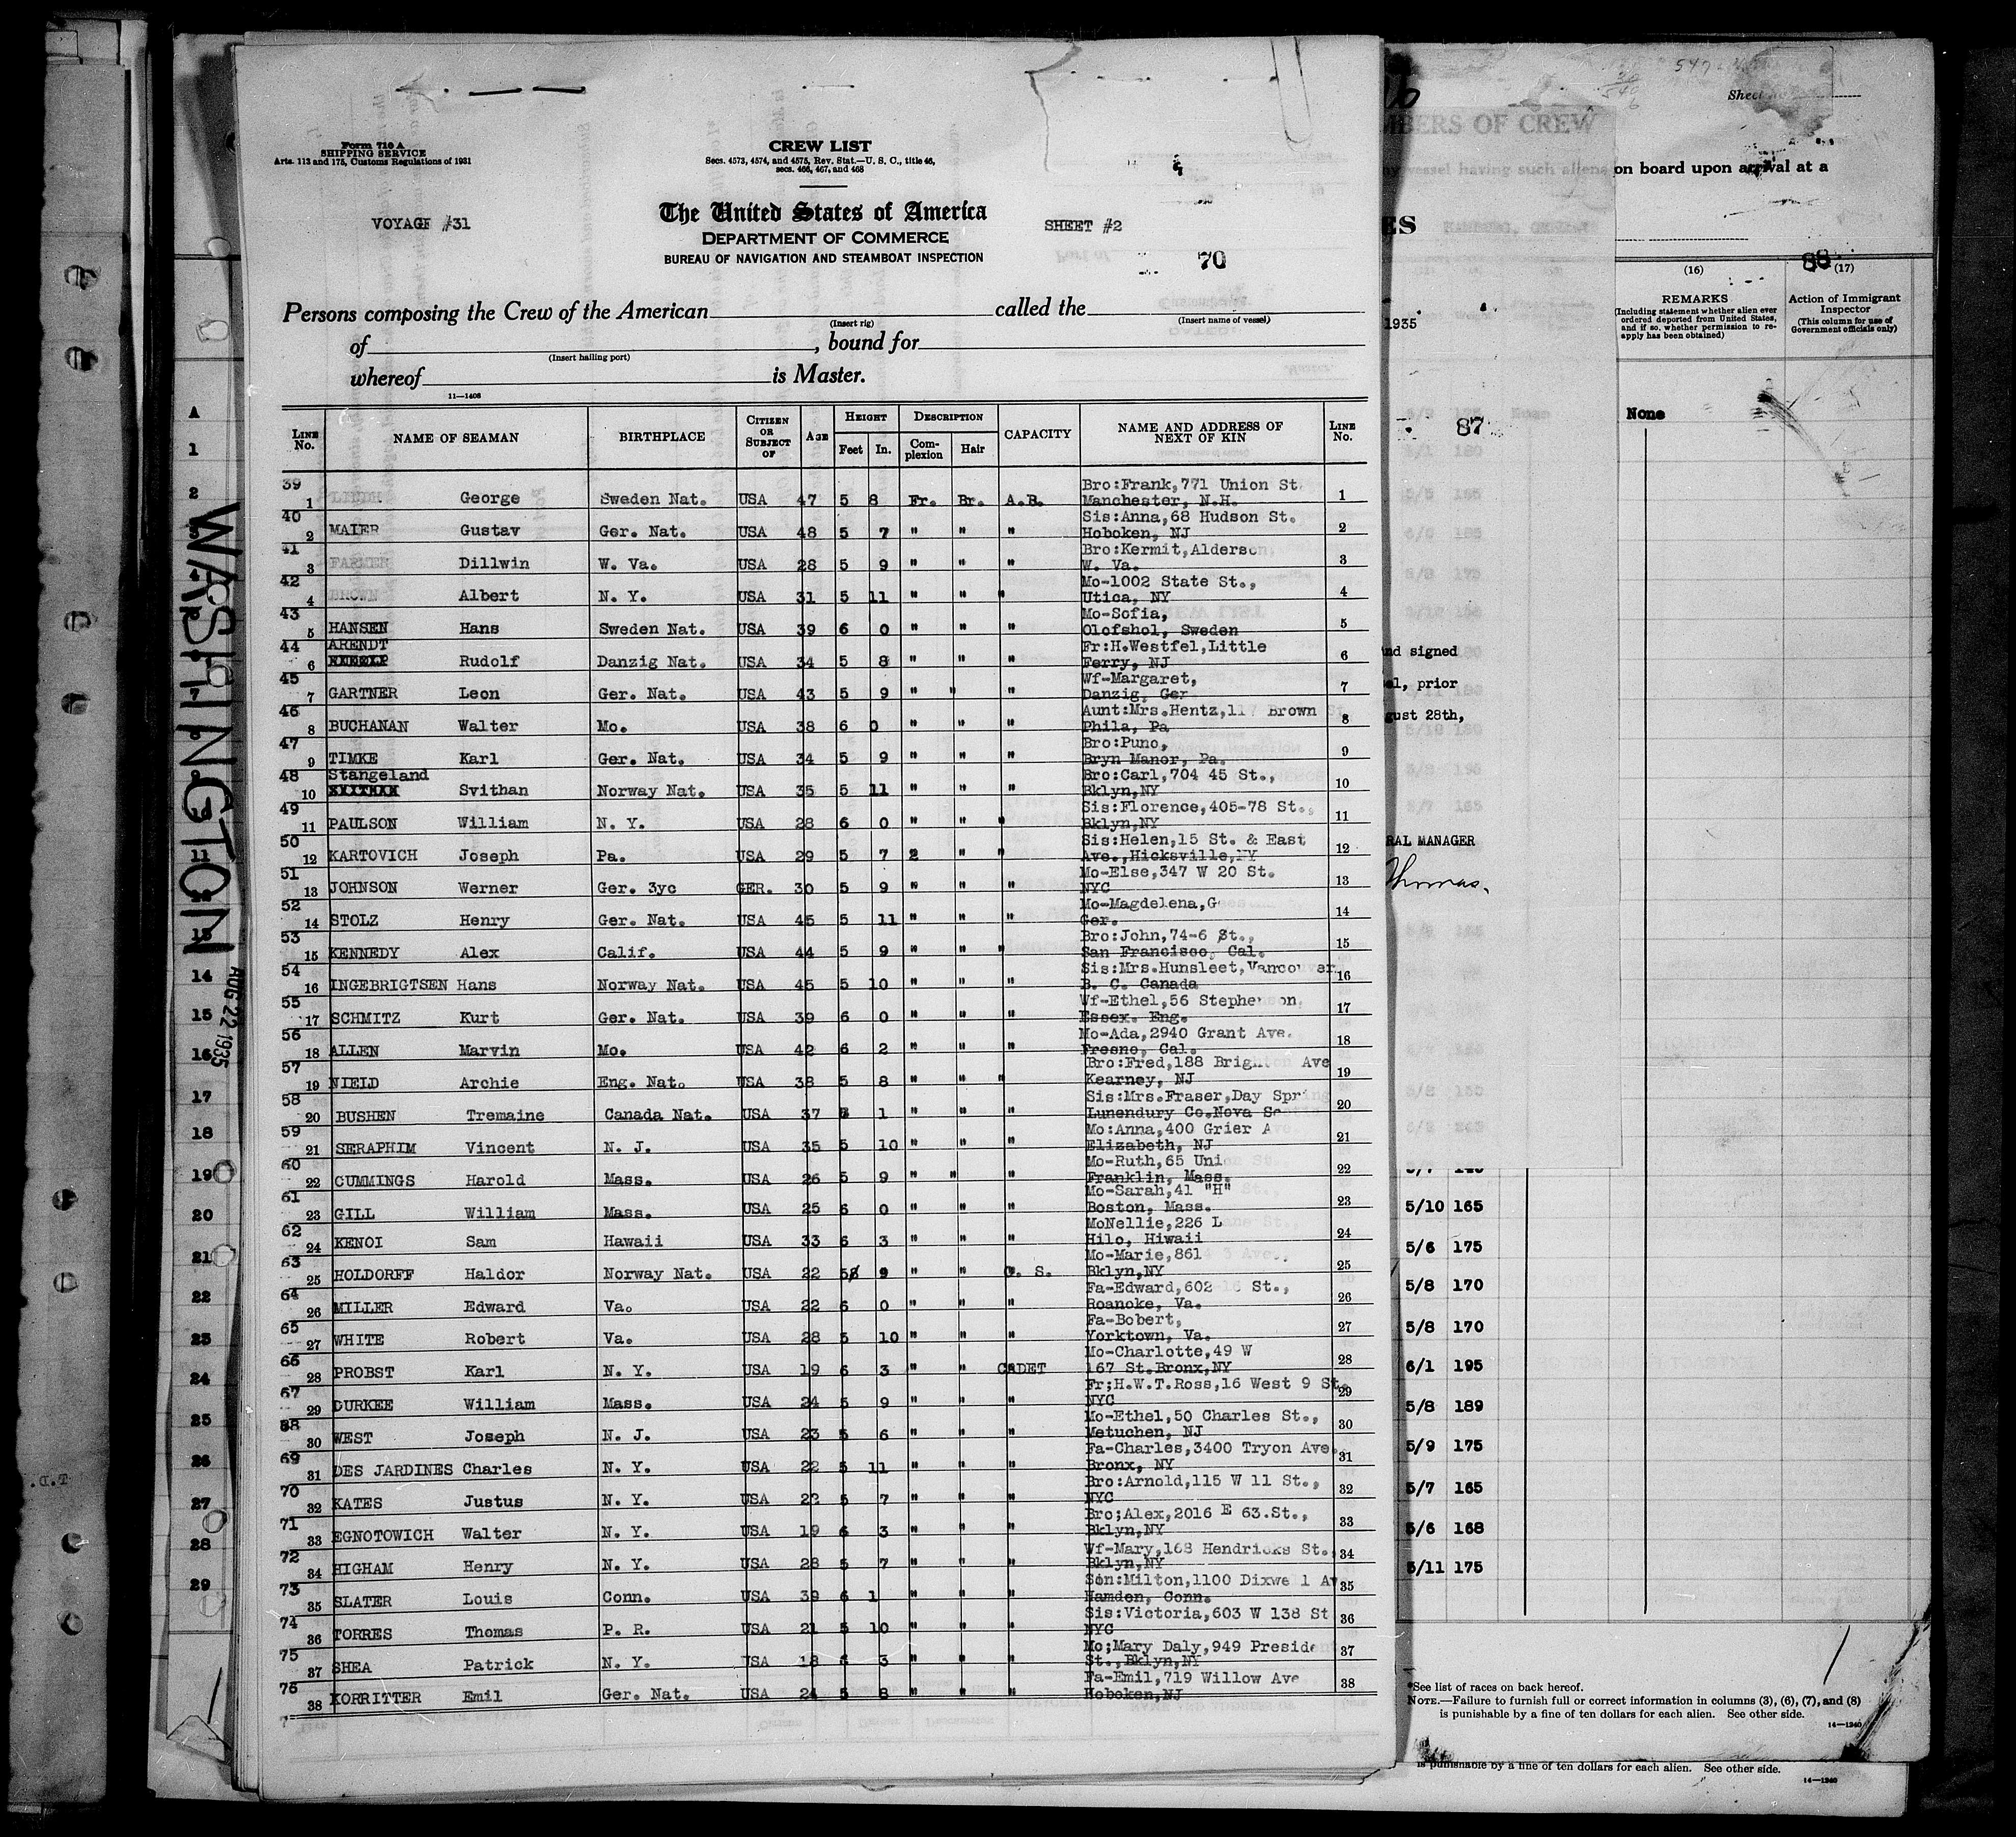 Form 710 A
SHIPPING SERVICE
Arts. 113 and 175, Customs Regulations of 1931
CREW LIST
Secs. 4573, 4574, and 4575, Rev. Stat.—U. S. C., title 46,
secs. 466, 467, and 468
VOYAGE #31
The United States of America
SHEET #2
DEPARTMENT OF COMMERCE
BUREAU OF NAVIGATION AND STEAMBOAT INSPECTION
70
Persons composing the Crew of the American called the
(Insert rig) (Insert name of vessel)
of , bound for
(Insert hailing port)
whereof is Master.
11—1408
LINE No. NAME OF SEAMAN BIRTHPLACE CITIZEN OR SUBJECT OF AGE HEIGHT Feet In. DESCRIPTION Complexion Hair CAPACITY NAME AND ADDRESS OF NEXT OF KIN LINE No.
39 1 George Sweden Nat. USA 47 5 8 Fr. Br. A.B. Bro:Frank,771 Union St. 1
Manchester, N.H.
40 2 MAIER Gustav Ger. Nat. USA 48 5 7 " " " Sis:Anna,68 Hudson St. 2
Hoboken, NJ
41 3 FARMER Dillwin W. Va. USA 28 5 9 " " " Bro:Kermit,Alderson, 3
W. Va.
42 4 BROWN Albert N. Y. USA 31 5 11 " " " Mo-1002 State St., 4
Utica, NY
43 5 HANSEN Hans Sweden Nat. USA 39 6 0 " " " Mo-Sofia, 5
Olofshol, Sweden
44 ARENDT
6 Rudolf Danzig Nat. USA 34 5 8 " " " Fr:H.Westfel,Little 6
Ferry, NJ
45 7 GARTNER Leon Ger. Nat. USA 43 5 9 " " " Wf-Margaret, 7
Danzig, Ger
46 8 BUCHANAN Walter Mo. USA 38 6 0 " " " Aunt:Mrs.Hentz,117 Brown St 8
Phila, Pa
47 9 TIMKE Karl Ger. Nat. USA 34 5 9 " " " Bro:Puno, 9
Bryn Manor, Pa.
48 Stangeland
10 Svithan Norway Nat. USA 35 5 11 " " " Bro:Carl,704 45 St., 10
Bklyn,NY
49 11 PAULSON William N. Y. USA 28 6 0 " " " Sis:Florence,405-78 St., 11
Bklyn,NY
50 12 KARTOVICH Joseph Pa. USA 29 5 7 2 " " Sis:Helen,15 St. & East 12
Ave.,Hicksville,NY
51 13 JOHNSON Werner Ger. 3yc GER. 30 5 9 " " " Mo-Else,347 W 20 St. 13
NYC
52 14 STOLZ Henry Ger. Nat. USA 45 5 11 " " " Mo-Magdelena,G 14
Ger.
53 15 KENNEDY Alex Calif. USA 44 5 9 " " " Bro:John,74-6 St., 15
San Francisco, Cal.
54 16 INGEBRIGTSEN Hans Norway Nat. USA 45 5 10 " " " Sis:Mrs.Hunsleet,Vancouver 16
B. C. Canada
55 17 SCHMITZ Kurt Ger. Nat. USA 39 6 0 " " " Wf-Ethel,56 Stephenson, 17
Essex. Eng.
56 18 ALLEN Marvin Mo. USA 42 6 2 " " " Mo-Ada,2940 Grant Ave. 18
Fresno, Cal.
57 19 NIELD Archie Eng. Nat. USA 38 5 8 " " " Bro:Fred,188 Brighton Ave 19
Kearney, NJ
58 20 BUSHEN Tremaine Canada Nat. USA 37 1 " " " Sis:Mrs.Fraser,Day Spring 20
Lunendury Co.Nova Scotia
59 21 SERAPHIM Vincent N. J. USA 35 5 10 " " " Mo:Anna,400 Grier Ave. 21
Elizabeth, NJ
60 22 CUMMINGS Harold Mass. USA 26 5 9 " " " Mo-Ruth,65 Union St. 22
Franklin, Mass.
61 23 GILL William Mass. USA 25 6 0 " " " Mo-Sarah,41 "H" St., 23
Boston, Mass.
62 24 KENOI Sam Hawaii USA 33 6 3 " " " MoNellie,226 L 24
Hilo, Hiwaii
63 25 HOLDORFF Haldor Norway Nat. USA 22 5 9 " " O. S. Mo-Marie,861 43 Ave., 25
Bklyn,NY
64 26 MILLER Edward Va. USA 22 6 0 " " " Fa-Edward,602-16 St., 26
Roanoke, Va.
65 27 WHITE Robert Va. USA 28 5 10 " " " Fa-Bobert, 27
Yorktown, Va.
66 28 PROBST Karl N. Y. USA 19 6 3 " " CADET Mo-Charlotte,49 W 28
167 St.Bronx,NY
67 29 DURKEE William Mass. USA 24 5 9 " " " Fr;H.W.T.Ross,16 West 9 St. 29
NYC
68 30 WEST Joseph N. J. USA 23 5 6 " " " Mo-Ethel,50 Charles St., 30
Metuchen, NJ
69 31 DES JARDINES Charles N. Y. USA 22 5 11 " " " Fa-Charles,3400 Tryon Ave. 31
Bronx, NY
70 32 KATES Justus N. Y. USA 22 5 7 " " " Bro:Arnold,115 W 11 St., 32
NYC
71 33 EGNOTOWICH Walter N. Y. USA 19 6 3 " " " Bro;Alex,2016 E 63.St., 33
Bklyn,NY
72 34 HIGHAM Henry N. Y. USA 28 5 7 " " " Wf-Mary,168 Hendricks St., 34
Bklyn,NY
73 35 SLATER Louis Conn. USA 39 6 1 " " " Son:Milton,1100 Dixwell Av 35
Hamden, Conn.
74 36 TORRES Thomas P. R. USA 21 5 10 " " " Sis:Victoria,603 W 138 St 36
NYC
75 37 SHEA Patrick N. Y. USA 18 3 " " " Mo;Mary Daly,949 President 37
St.,Bklyn,NY
76 38 KORRITTER Emil Ger. Nat. USA 24 5 8 " " " Fa-Emil,719 Willow Ave 38
Hoboken,NJ
WASHINGTON
AUG 22 1935
A
1
2
11
14
15
16
17
18
19
20
21
22
23
24
25
26
27
28
29
Sheet No
MBERS OF CREW
ny vessel having such aliens on board upon arrival at a
ES
88
(16) (17)
REMARKS
(Including statement whether alien ever
ordered deported from United States,
and if so, whether permission to re-
apply has been obtained)
Action of Immigrant
Inspector
(This column for use of
Government officials only)
1935
None
87
nd signed
el, prior
gust 28th,
RAL MANAGER
Thomas.
5/10 165
5/6 175
5/8 170
5/8 170
6/1 195
5/8 189
5/9 175
5/7 165
5/6 168
5/11 175
*See list of races on back hereof.
NOTE.—Failure to furnish full or correct information in columns (3), (6), (7), and (8)
is punishable by a fine of ten dollars for each alien. See other side.
14—1240
is punishable by a fine of ten dollars for each alien. See other side.
14—1240